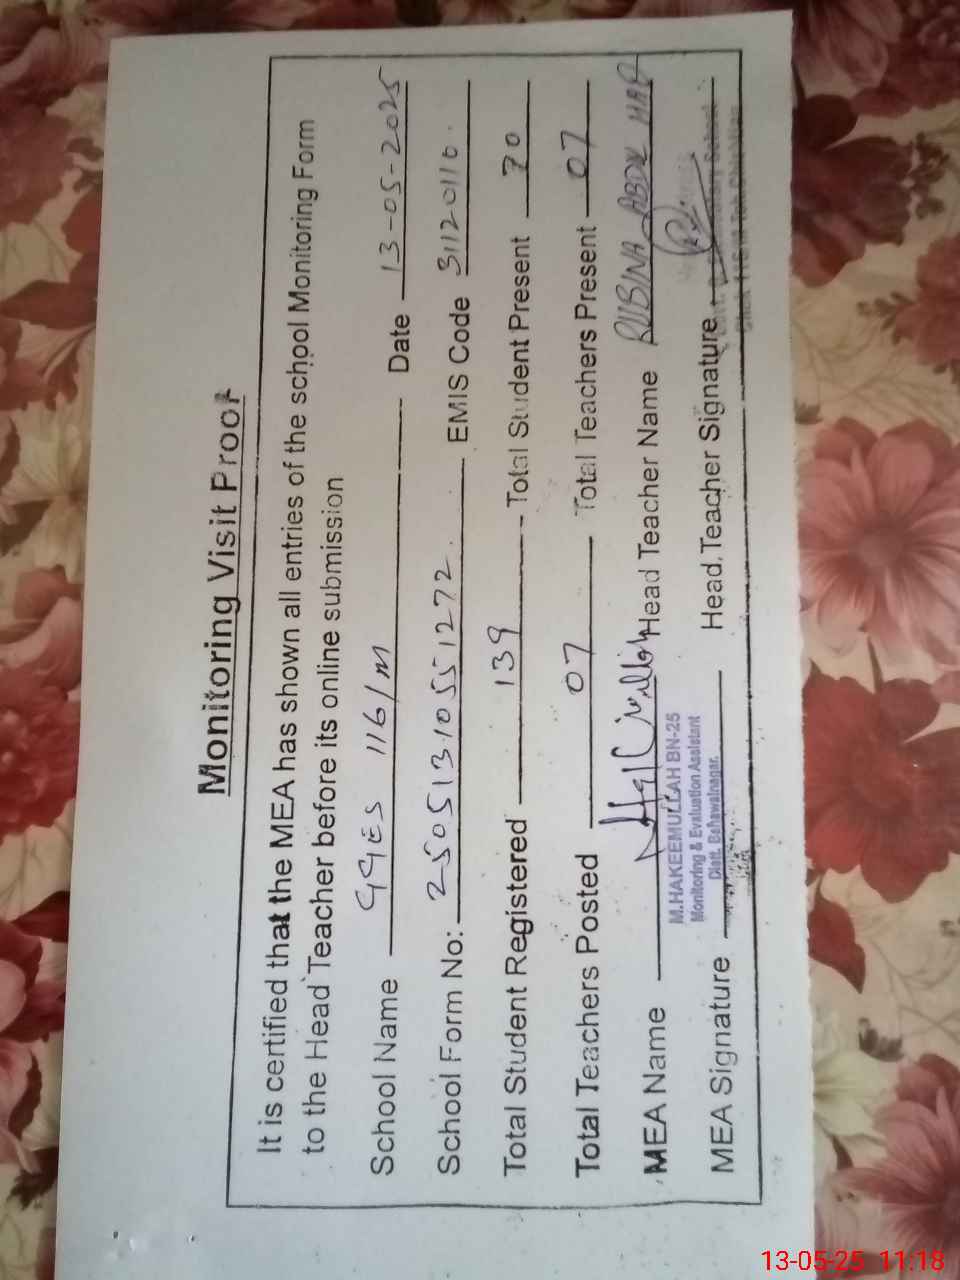 Monitoring Visit Proof
It is certified that the MEA has shown all entries of the school Monitoring Form
to the Head Teacher before its online submission
School Name GGES 116/M Date 13-05-2025
School Form No: 25051310551272 EMIS Code 31120116
Total Student Registered 139 Total Student Present 70
Total Teachers Posted 07 Total Teachers Present 07
MEA Name Head Teacher Name RUBINA ABDUL HAQ
M.HAKEEMULLAH BN-25
Monitoring & Evaluation Assistant
Distt. Bahawalnagar.
MEA Signature Head Teacher Signature
13-05-25 11:18